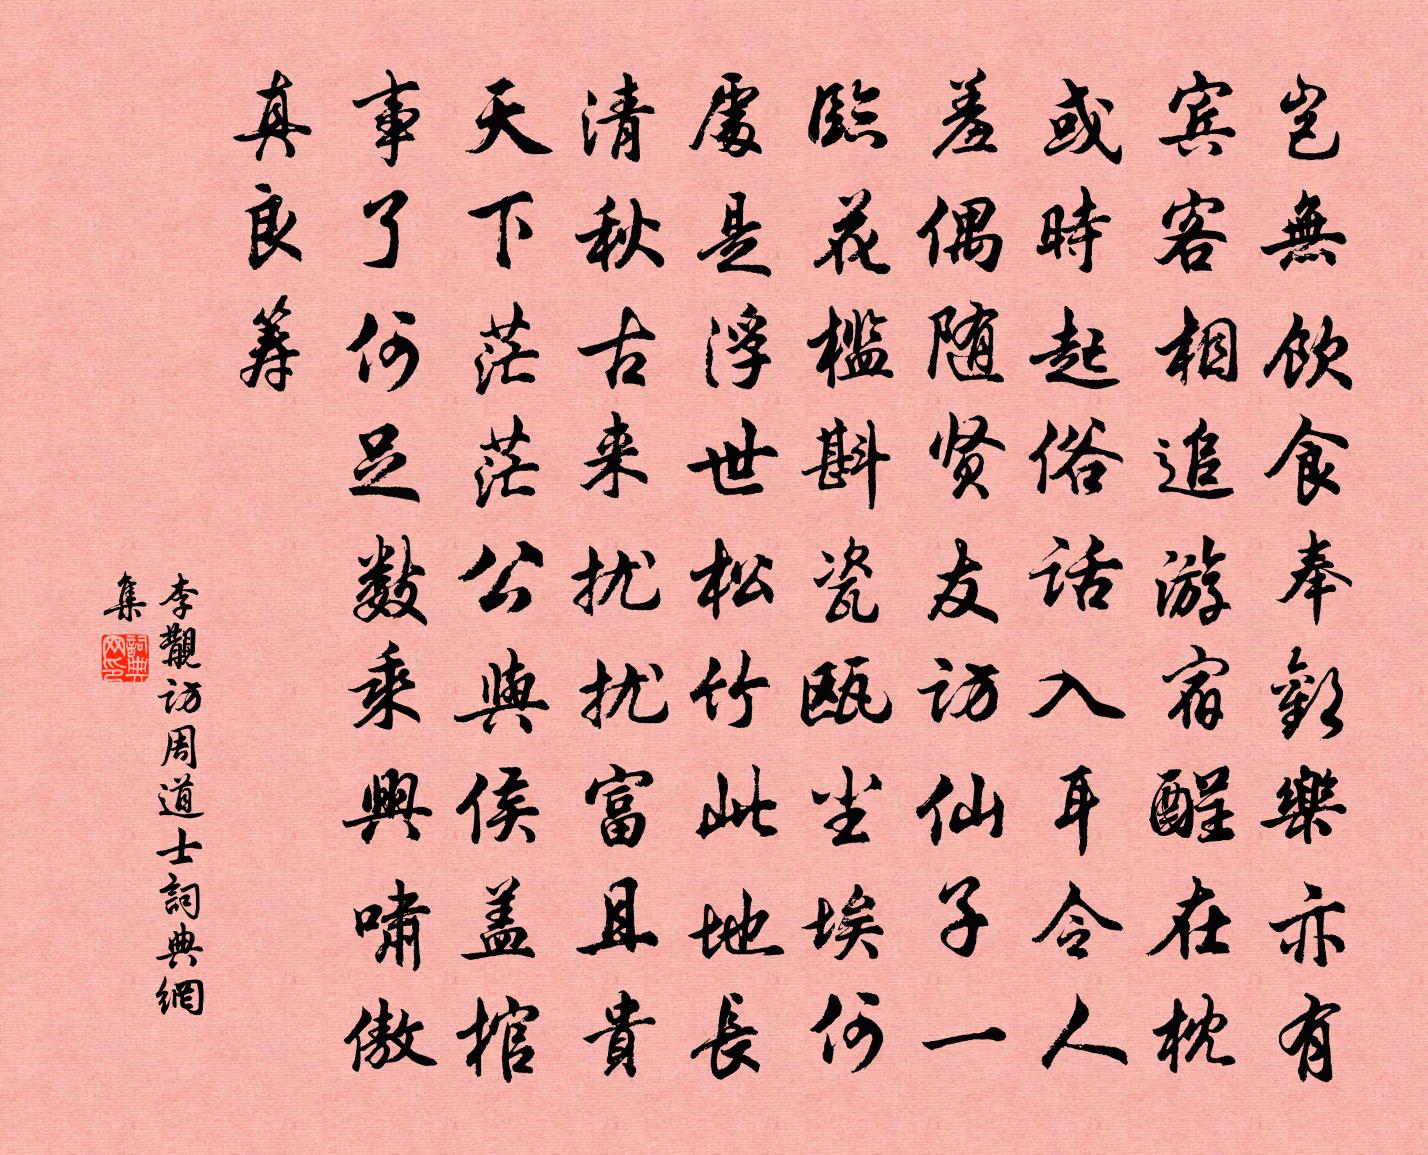 豈無飲食奉歡樂亦有
宾客相追游宿醒在枕
或時起俗話入耳令人
羞偶随贤友訪仙子一
臨花檻斟瓷甌尘埃何
處是浮世松竹此地長
清秋古来扰扰富且貴
天下茫茫公與侯盖棺
事了何足数乘興嘯傲
真良筹
李覯訪周道士詞典網
集
詞典網印